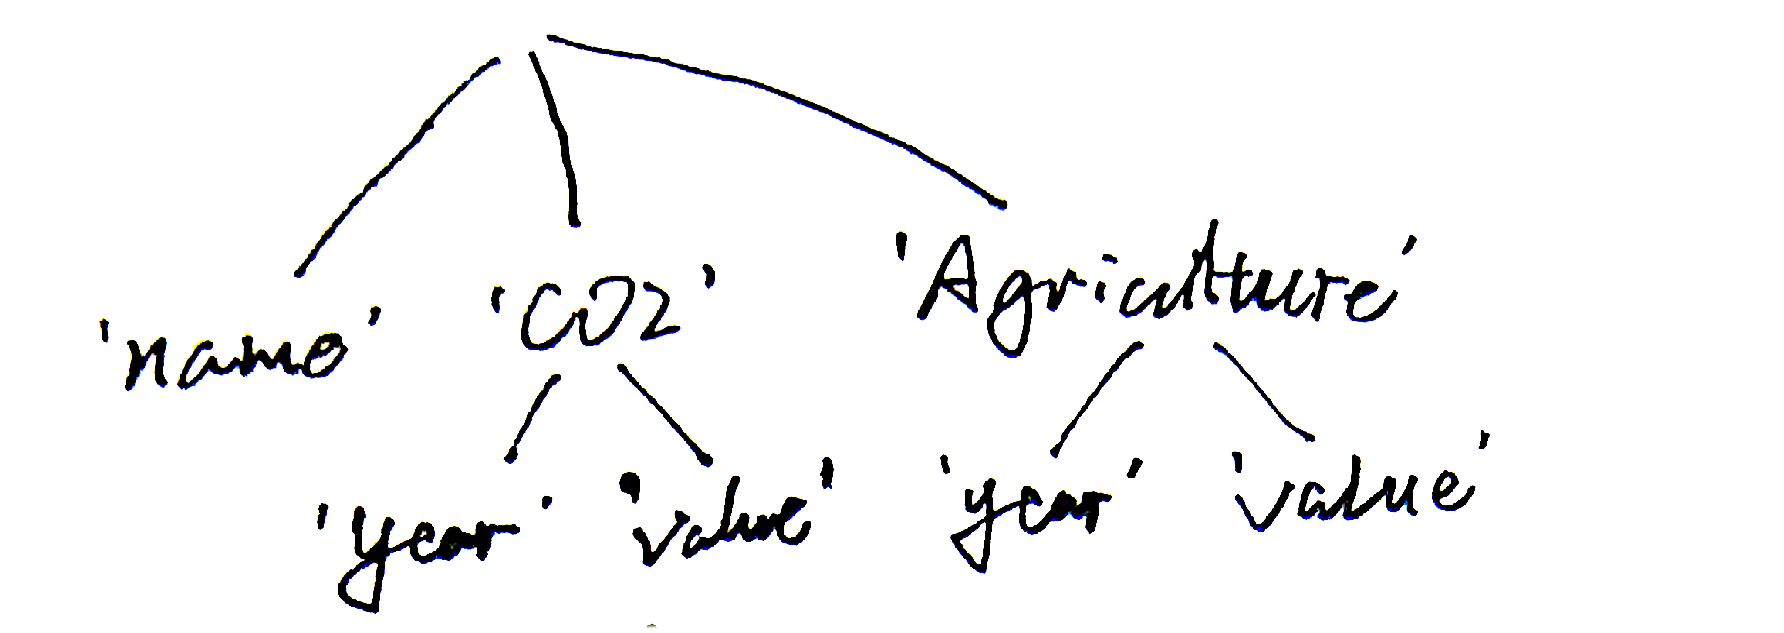 'name' 'CO2' 'Agriculture'
'year' 'value' 'year' 'value'